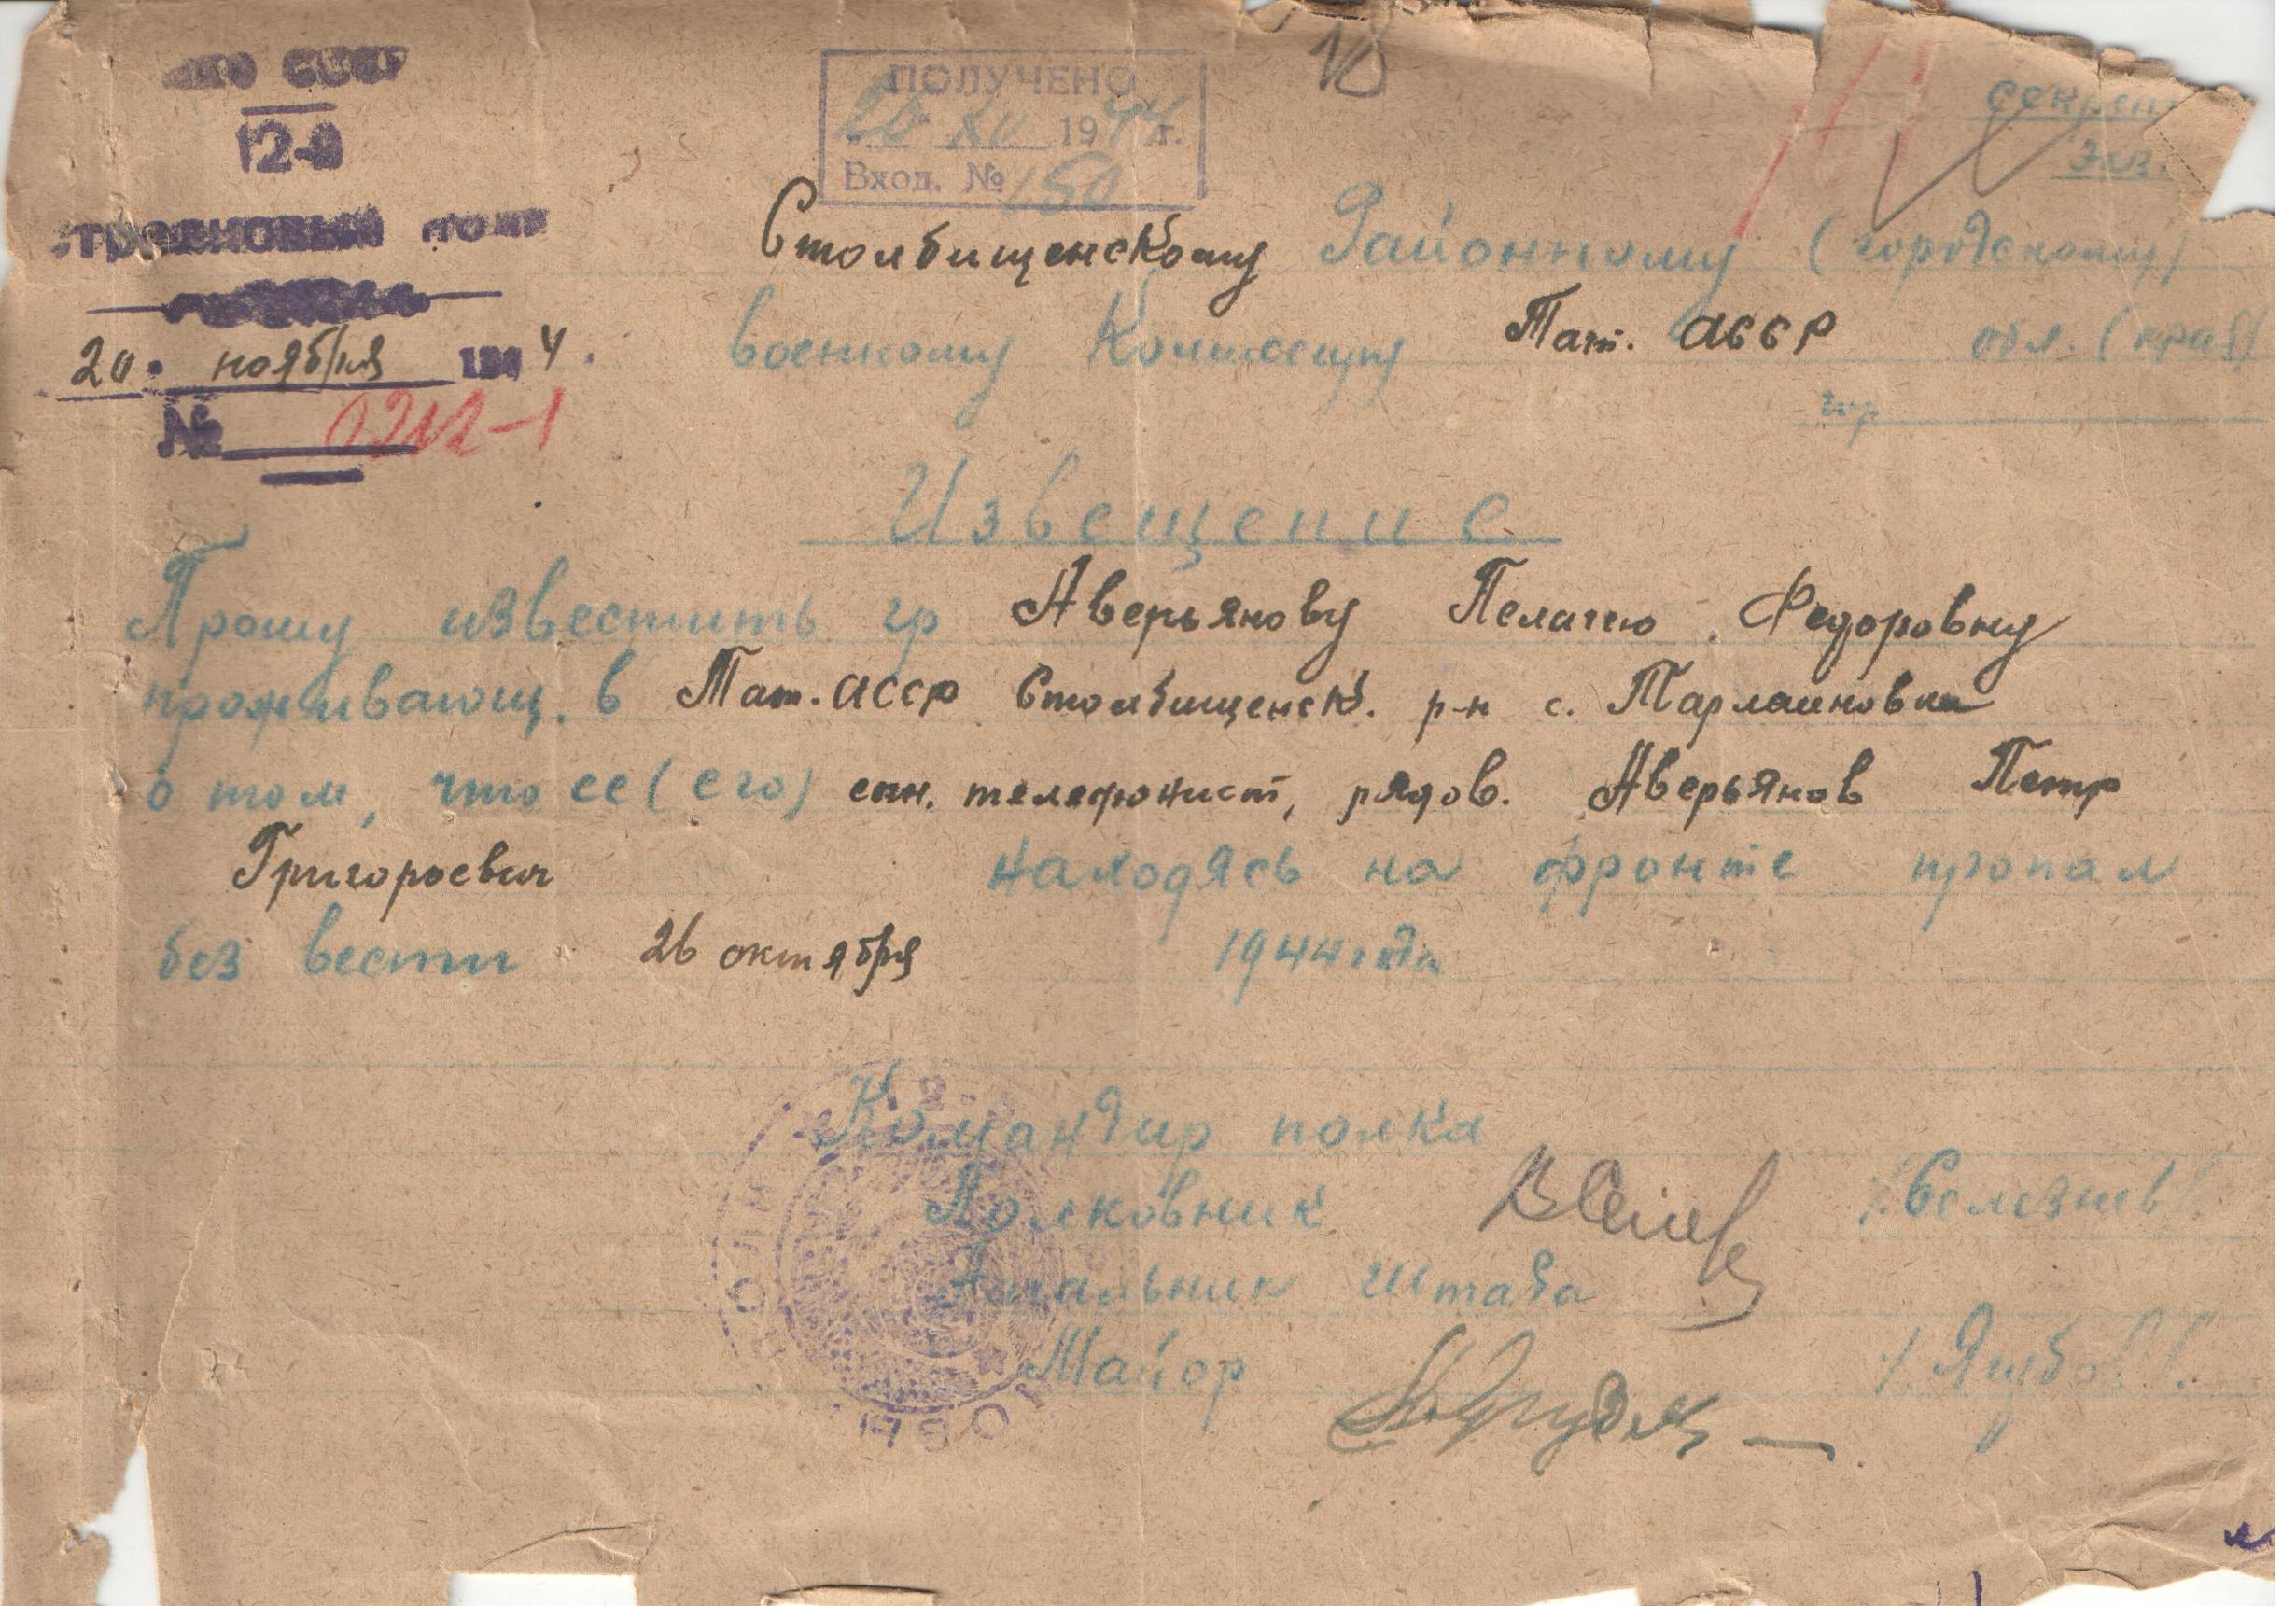 НКО СССР
12-й
стрелковый полк
20. ноября 1944.
№ 0212-1
ПОЛУЧЕНО
20 XII 1944 г.
Вход. № 150
10
секрет
экз.
Столбищенскому Районному (городскому)
военному Комиссару Тат. АССР обл. (края)
гор
Извещение
Прошу известить гр Аверьянову Пелагею Федоровну
проживающ. в Тат. АССР Столбищенск. р-н с. Тарлашовка
о том, что ее (его) сын. телефонист, рядов. Аверьянов Петр
Григорьевич находясь на фронте пропал
без вести 26 октября 1944 года
Командир полка
Полковник /Селезнев/.
Начальник Штаба
Майор